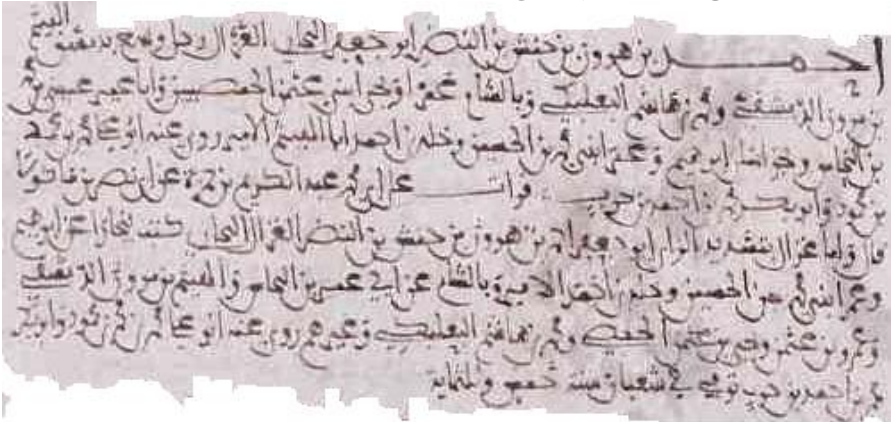 احمد بن هرون بن حنش بن النضر ابو جعفر البخاري الغزال رحل وسمع بدمشق الهيثم
بن مروان الدمشقي ومحمد بن هاشم البعلبكي وبالشام عمرا ويحيى ابني عثمن الحمصيين وابا عمير عيسى بن محمد
بن النحاس وبخراسان ابرهيم وعمر ابني محمد بن الحسين وخلد بن احمد ابا الهيثم الامير روى عنه ابو عامر بن محمد
بن ثور وابو بكر محمد بن احمد بن حرب قرات على ابي محمد عبد الكريم بن حمزة عن ابي نصر بن ماكولا
قال واما غزال بتشديد الزاي ابو جعفر احمد بن هرون بن حنش بن النضر الغزال البخاري كتب ببخارا عن ابرهيم
وعمر ابني محمد بن الحسين وخلد بن احمد الامير وبالشام عن ابي عمير بن النحاس والهيثم بن مروان الدمشقي
وعمرو بن عثمن ويحيى بن عثمن الحمصي ومحمد بن هاشم البعلبكي وغيرهم روى عنه ابو عامر بن محمد بن ثور وابو بكر
محمد بن احمد بن حرب توفي في شعبان سنة خمس وثلثماية